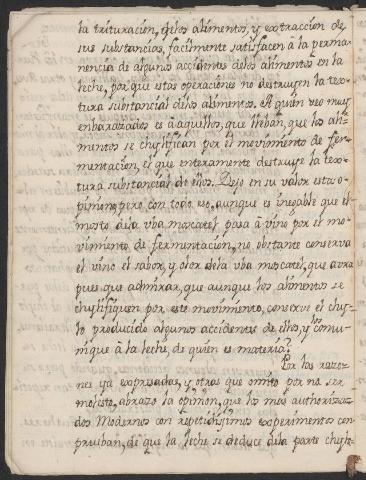 la trituracion, q̃ los alimentos, y extraccion de
sus substancias, facilmente satisfacen à la perma-
nencia de algunos accidentes delos alimentos en la
leche, por que estas operaciones no destruyen la tex-
tura substancial delos alimentos. A quien veo muy
embarazados es à aquellos, que lleban, que los ali-
mentos se chylifican por el movimiento de fer-
mentacion, el que enteramente destruye la tex-
tura substancial de ellos. Dejo en su valor esta o-
pinion, pero con todo eso, aunque es inegable que el
mosto dela vba moscatel pasa à vino por el mo-
vimiento de fermentacion, no obstante conserva
el vino el sabor, y olor dela vba moscatel, que avra
pues que admirar, que aunque los alimentos se
chylifiquen por este movimiento, conserve el chy-
lo producido algunos accidentes de ellos, y comu-
nique à la leche, de quien es materia?
Por las razo-
nes ya expresadas, y otras que omito por no ser
molesto, abrazo la opinion, que los mas authoriza-
dos Modernos con repetidisimos experimentos com-
prueban, de que la leche se deduce dela parte chylo-